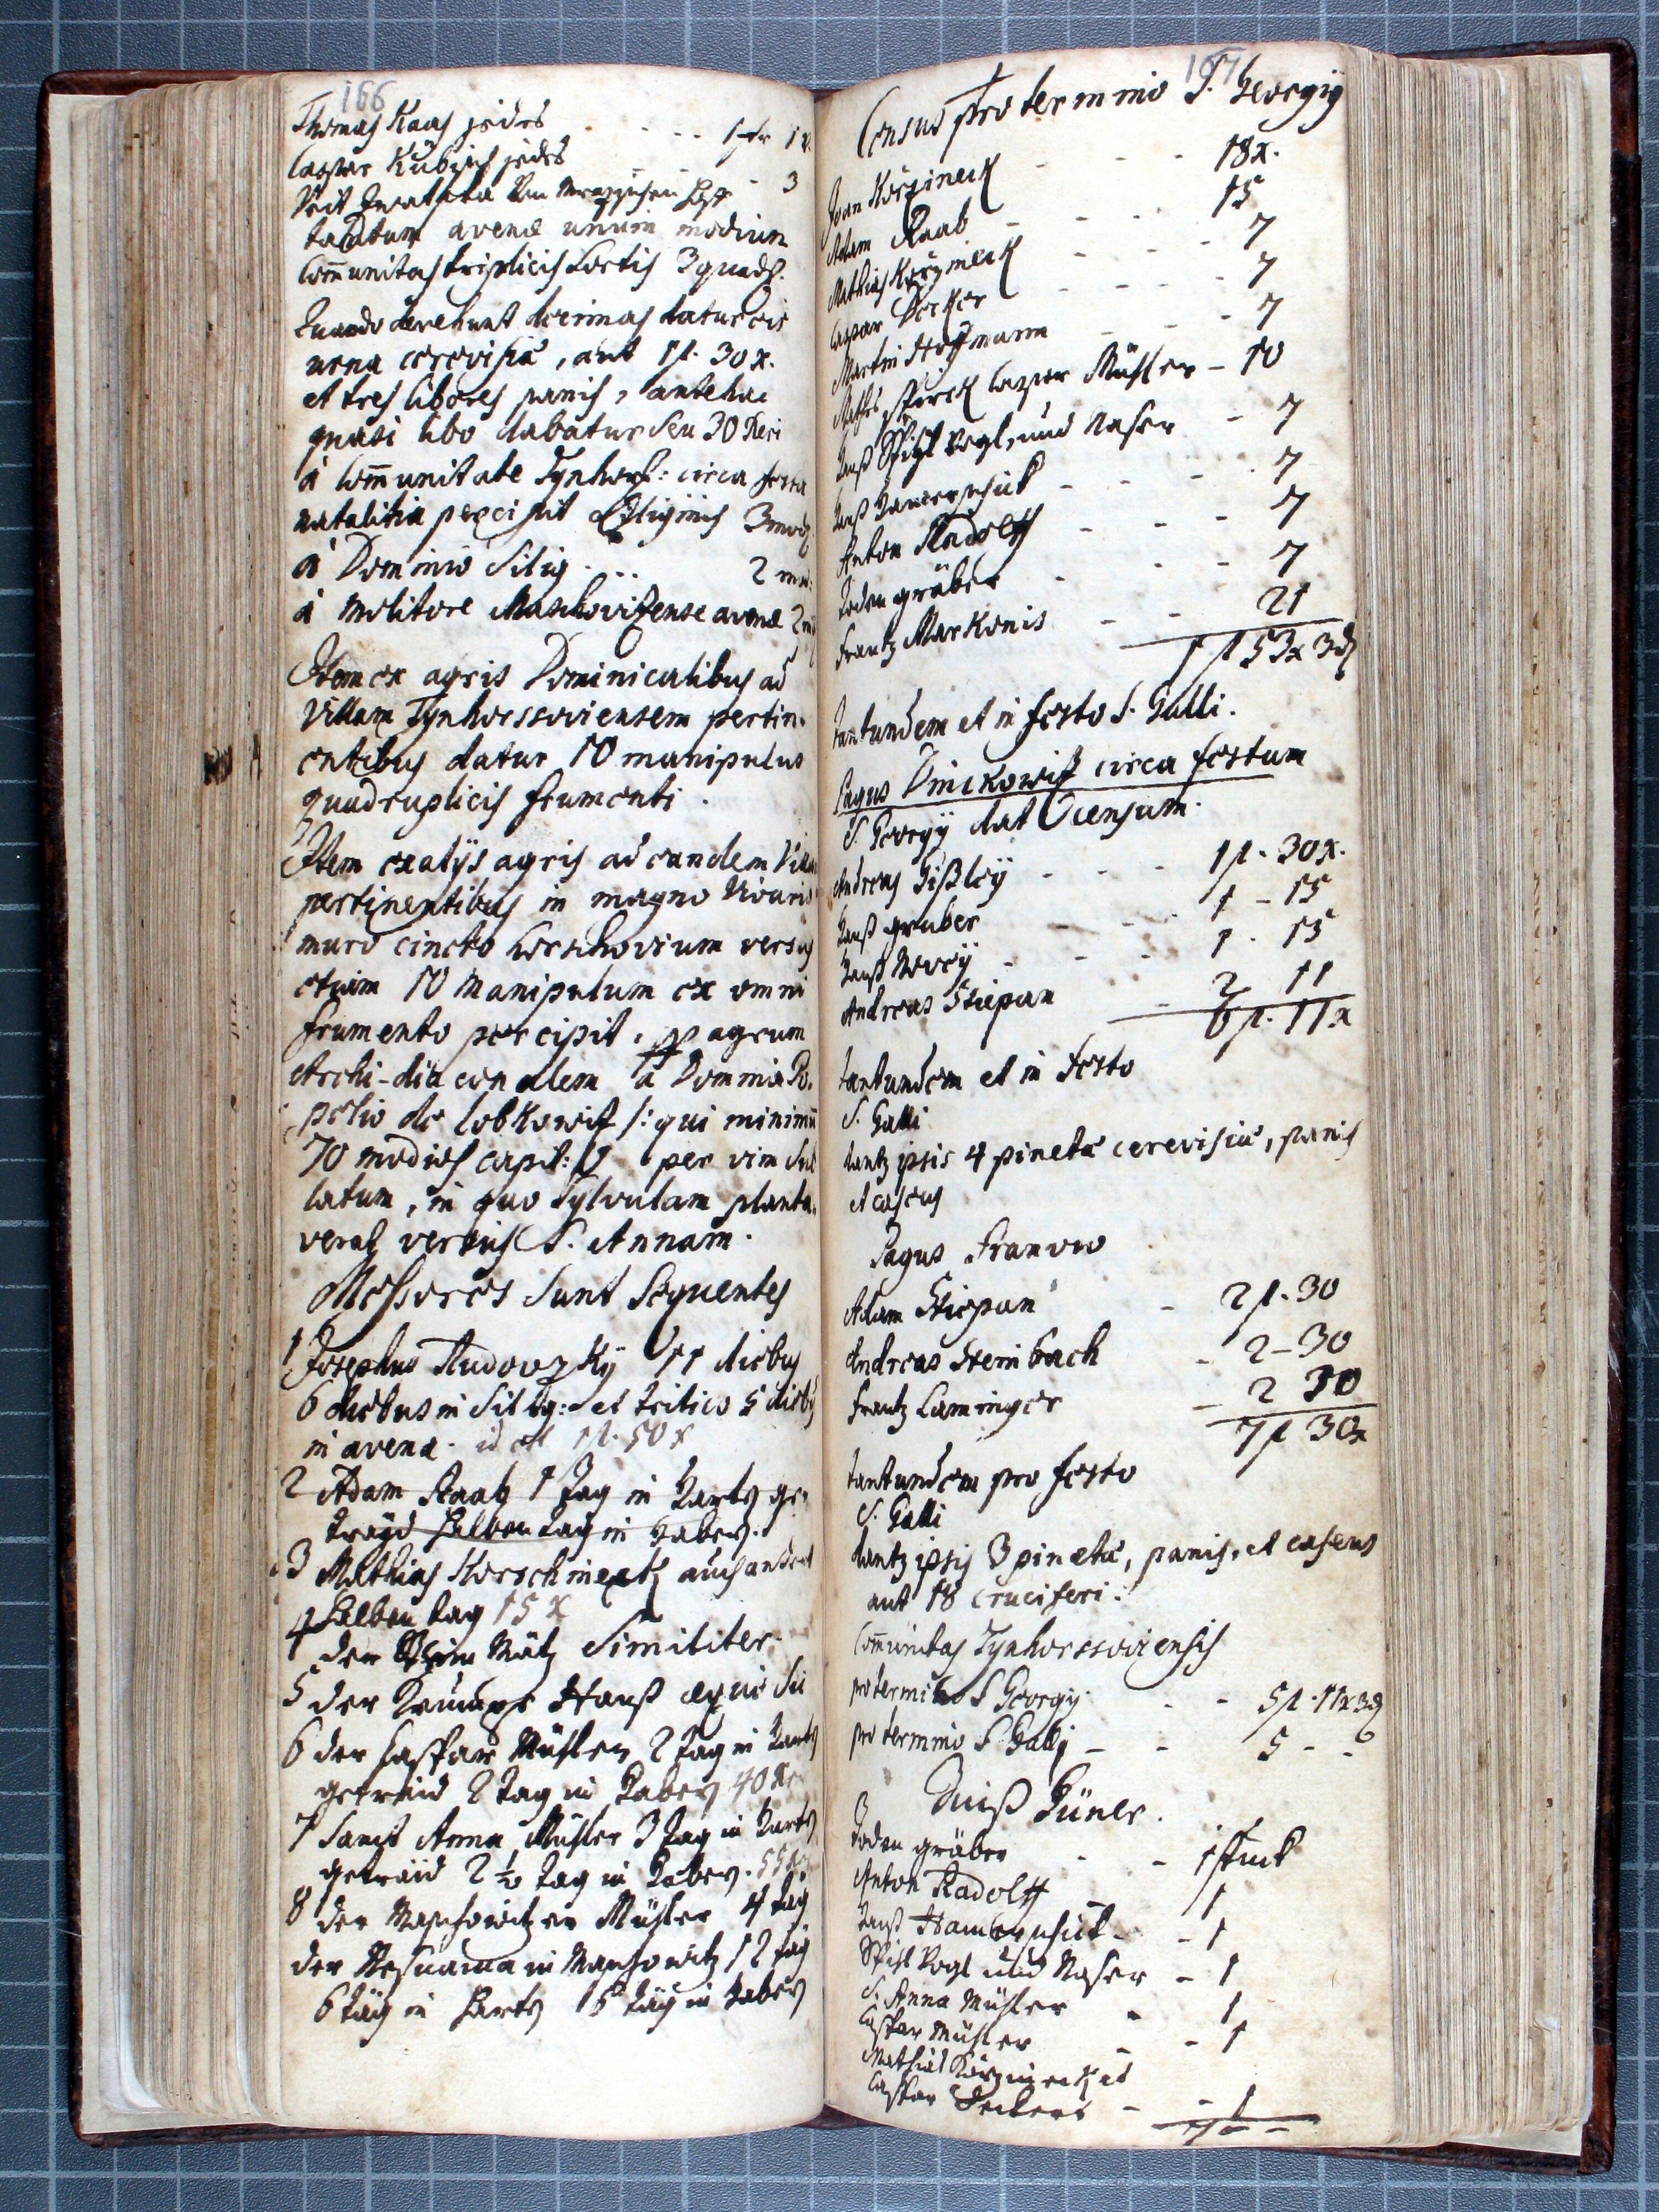 166
Thomas Kaas jedes - - - - 1 fr 1 x
Caspar Kubisch jedes - - - 3
Veit
tantum avenæ unum modium
Com̄unitas triplicis sortis 3 quadr.
Quando devehunt decimas datur eis
urna cerevisiæ, aut 1 fl. 30 x.
et tres libones panis, antehac
quasi libo dabatur seu 30 Xeri
à Com̄unitate Tynhorss: circa festa
natalitia percipit Siliginis 3 mod
à Dominio Silig . . . 2 mod:
à Molitore Maschovizense avenæ 2 mod
Item ex agris Dominicalibus ad
Villam Tynhorssoviensem pertin-
entibus datur 10 manipulus
quadruplicis frumenti.
Item ex alijs agris ad eandem Villam
pertinentibus in magno Vivario
muro cincto Horschovium versus
etiam 10 Manipulum ex omni
frumento percipit, p agrum
Archi-diaconalem à Domino Po-
petio de Lobkowitz /: qui minimū
70 modios capit: / per vim sub
latum, in quo Sylvulam planta-
verat versus S. Annam.
Messores sunt Sequentes
1 Josephus Rudovzky 11 diebus
6 diebus in Silig: et tritico 5 dieb9
in avena. id est 1 fl. 50 x
2 Adam Raab 1 tag in harts ge-
trayd halben tag in haber.
3 Mathias Korschineck auch anderthalben tag 15 x
4 der Klein Mätz Similiter.
5 der Krumpe Hanß æque sic
6 der Caspar Müller 2 tag in harts
getraid 2 tag in haber 40 Xer
7 Sanct Anna Müller 3 tag in harts
getraid 2 ½ tag in haber. 55 X
8 der Maschowitzer Müller 4 tag
der in Maschowitz 12 täg
6 täg in harts 6 täg in haber
167
Census pro termino S. Georgij
Joan Korzineck - - - 18 x.
Adam Raab - - - 15
Mathias Korzineck - - - 7
Caspar Decker - - - 7
Martin Hoffmann - - - 7
Mathes Stirck Caspar Müller - 10
Hanß Spihl Vogl, und Naser - 7
Hanß Hamerschick - - - 7
Anton Radolff - - - 7
Todengräber - - - 7
Frantz Markonis - - 21
1 fl 53 x 3 d
tantundem et in festo S. Galli.
Pagus Dinckowitz circa festum
S. Georgij dat Censum.
Andreas Dißley - - - 1 fl. 30 x.
Hanß gruber - - - 1 - 15
Hanß Novey - - - 1 . 15
Andreas Stiepan - 2 11
6 fl. 11 x
tantundem et in festo
S. Galli
dantz ipsis 4 pinctæ cerevisiæ, panis
et caseus
Pagus Franovo
Adam Stiepan - 2 fl. 30
Andreas Steinbach - 2 - 30
Frantz Laminger - 2 30
7 fl 30 x
tantundem pro festo
S. Galli
dantz ipsis 3 pinctæ, panis, et caseus
aut 18 cruciferi.
Com̄unitas Tynhorssoviensis
pro termino S Georgij - - 5 fl. 11 x 3 d
pro termino S Galli - - 5 - -
Zinß Hüner.
Todengräber - - 1 stuck
Anton Radolff - 1
Hanß Hamerschick - - 1
Spihl Vogl und Naser - 1
S. Anna Müller - 1
Caspar Müller - - 1
Mathias Korzineck et
Caspar Deckers - - 1